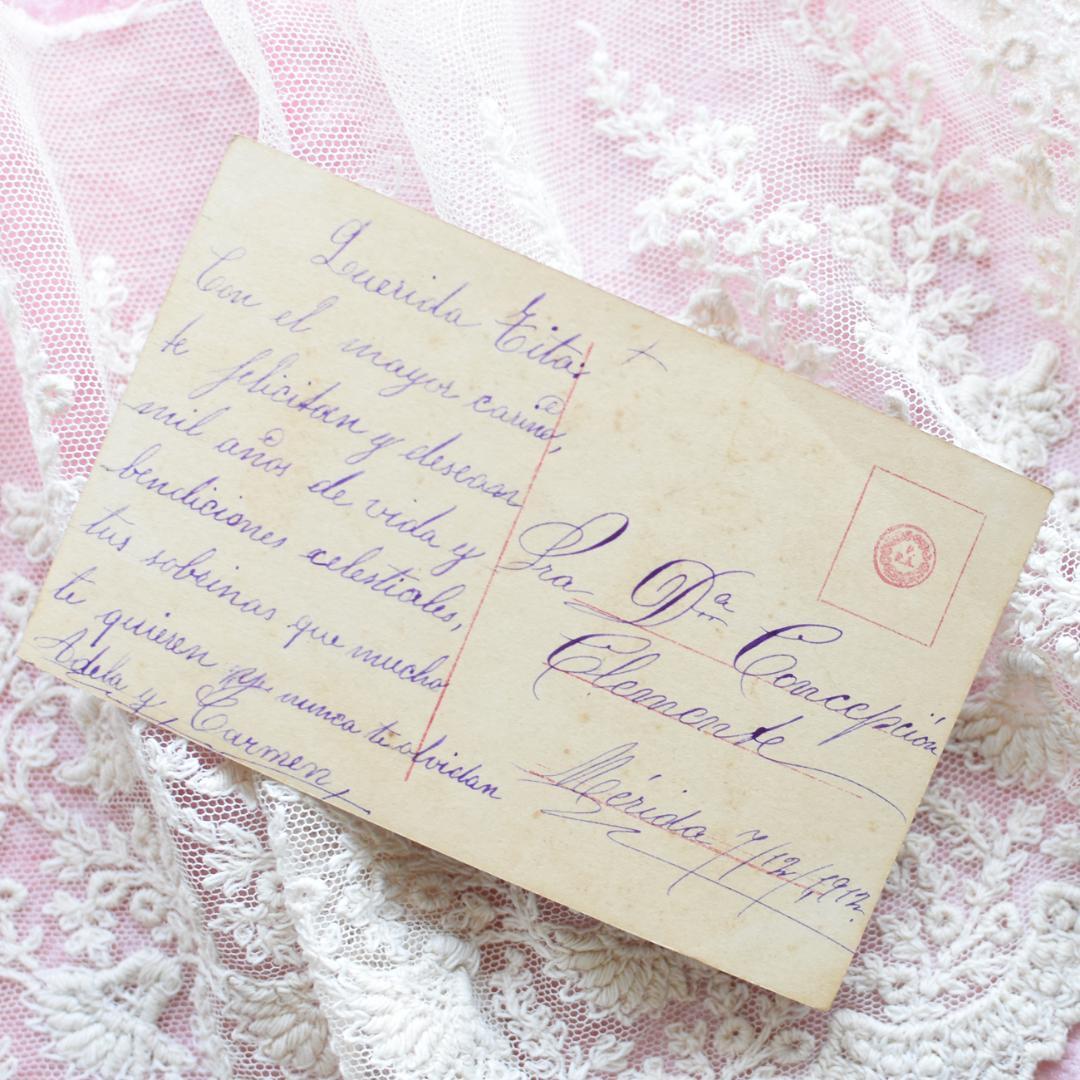 Querida Tita:
Con el mayor cariño,
te felicitan y desean
mil años de vida y
bendiciones celestiales,
tus sobrinas que mucho
te quieren y nunca te olvidan
Adela y Carmen
+
Sra Dª Concepción
Clemente
Mérida 7/12/1912.